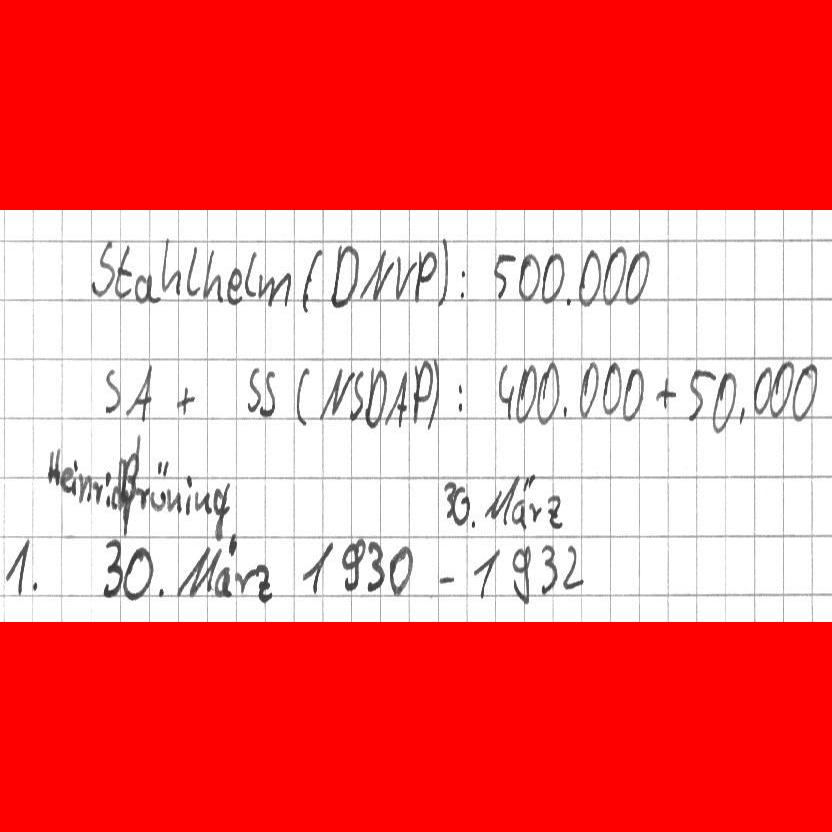 Stahlhelm (DNVP): 500.000
SA + SS (NSDAP): 400.000 + 50.000
Heinrich Brüning 30. März
1. 30. März 1930 - 1932